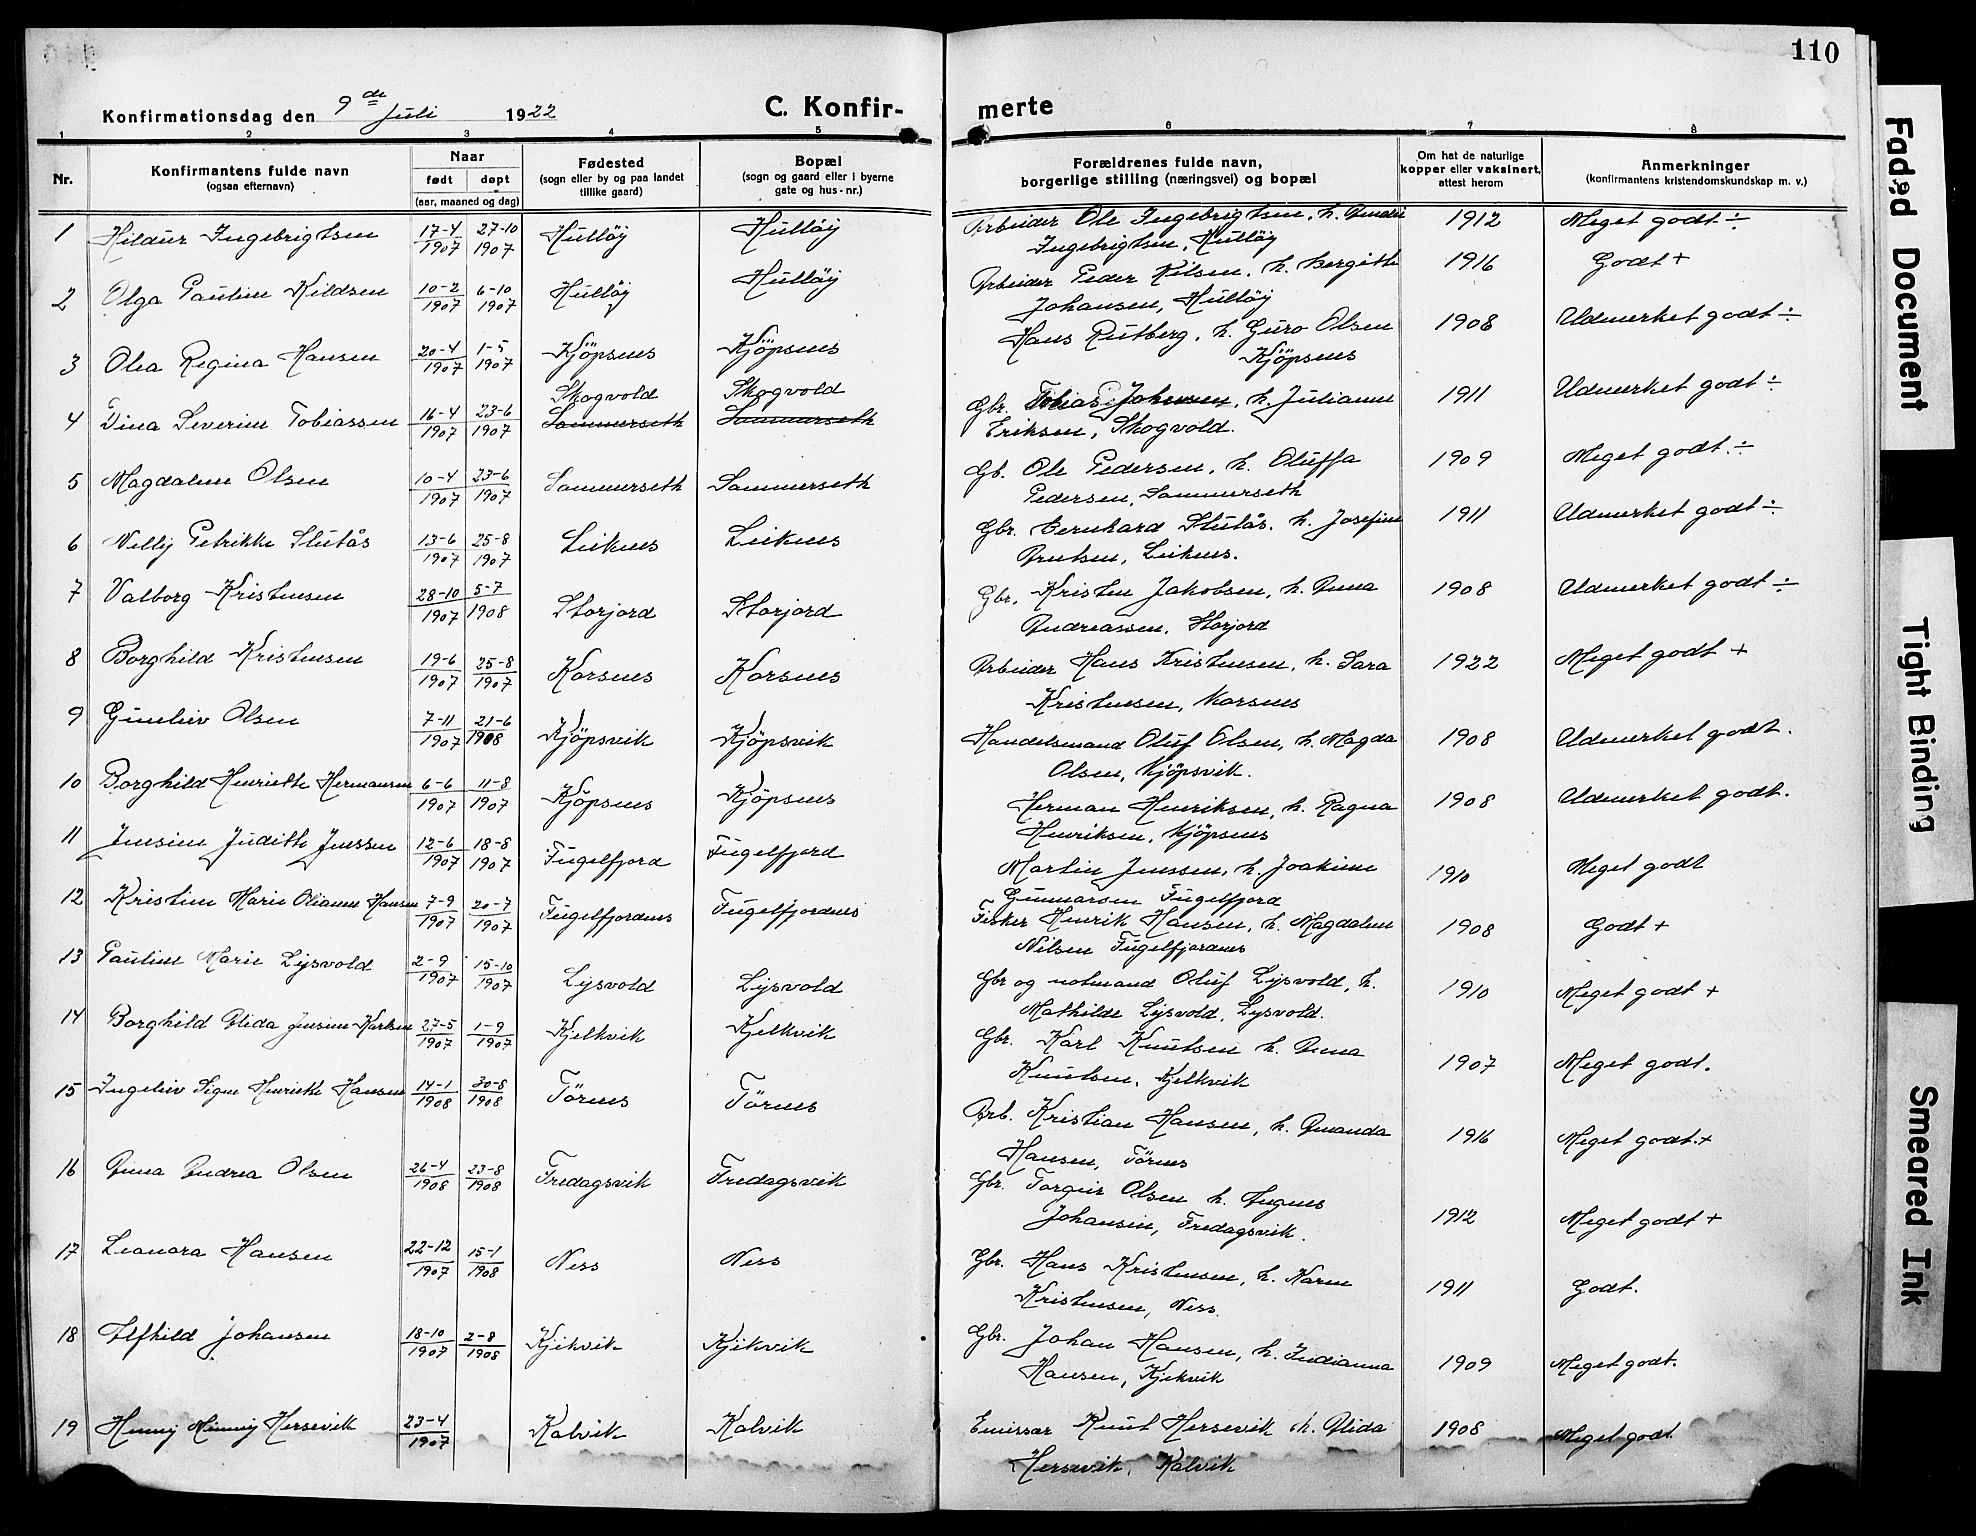 110
Konfirmationsdag den 9de Juli 1922
C. Konfir-
merte
1 2 3 4 5 6 7 8
Nr.
Konfirmantens fulde navn
(ogsaa efternavn)
Naar
født døpt
(aar, maaned og dag)
Fødested
(sogn eller by og paa landet
tillike gaard)
Bopæl
(sogn og gaard eller i byerne
gate og hus-nr.)
Forældrenes fulde navn,
borgerlige stilling (næringsvei) og bopæl
Om hat de naturlige
kopper eller vaksinert,
attest herom
Anmerkninger
(konfirmantens kristendomskundskap m. v.)
1 Hildur Ingebrigtsen 17-4 1907 27-10 1907 Hulløy Hulløy Arbeider Ole Ingebrigtsen, h. Amarie 1912 Meget godt ÷
Ingebrigtsen, Hulløy
2 Olga Pauline Kildsen 10-2 1907 6-10 1907 Hulløy Hulløy Arbeider Peder Kilsen, h. Bergitte 1916 Godt +
Johansen, Hulløy
3 Olea Regina Hansen 20-4 1907 1-5 1907 Kjöpsnes Kjöpsnes Hans Rutberg, h. Guro Olsen 1908 Udmerket godt ÷
Kjöpsnes
Skogvold Skogvold
4 Dina Severine Tobiassen 16-4 1907 23-6 1907 Sommerseth Sommerseth Gbr. Tobias Johnsen, h. Julianne 1911 Udmerket godt ÷
Eriksen, Skogvold.
5 Magdalene Olsen 10-4 1907 23-6 1907 Sommerseth Sommerseth Gb. Ole Pedersen, h. Oluffa 1909 Meget godt ÷
Pedersen, Sommerseth
6 Nelly Petrikke Slutås 13-6 1907 25-8 1907 Leiknes Leiknes Gbr. Bernhard Slutås, h. Josefine 1911 Udmerket godt ÷
Arntsen, Leiknes.
7 Valborg Kristensen 28-10 1907 5-7 1908 Storjord Storjord Gbr. Kristen Jakobsen, h. Anna 1908 Udmerket godt ÷
Andreassen, Storjord
8 Borghild Kristensen 19-6 1907 25-8 1907 Korsnes Korsnes Arbeider Hans Kristensen, h. Sara 1922 Meget godt +
Kristensen, Korsnes
9 Gunliev Olsen 7-11 1907 21-6 1908 Kjöpsvik Kjöpsvik Handelsmand Oluf Olsen, h. Magda 1908 Udmerket godt.
Olsen, Kjöpsvik.
10 Borghild Henriette Hermansen 6-6 1907 11-8 1907 Kjöpsnes Kjöpsnes Herman Henriksen, h. Ragna 1908 Udmerket godt.
Henriksen, Kjöpsnes
11 Jensine Judith Jenssen 12-6 1907 18-8 1907 Fugelfjord Fugelfjord Martin Jenssen, h. Joakime 1910 Meget godt
Gunnarsen Fugelfjord
12 Kristine Marie Olianne Hansen 7-9 1907 20-7 1907 Fugelfjordnes Fugelfjordnes Fisker Henrik Hansen, h. Magdalene 1908 Godt +
Nilsen Fugelfjordnes
13 Pauline Marie Lysvold 2-9 1907 15-10 1907 Lysvold Lysvold Gbr og notmand Oluf Lysvold, h. 1910 Meget godt +
Mathilde Lysvold, Lysvold.
14 Borghild Alida Jensine Karlsen 27-5 1907 1-9 1907 Kjelkvik Kjelkvik Gbr. Karl Knutsen h. Anna 1907 Meget godt.
Knutsen, Kjelkvik
15 Ingeliev Signe Henriette Hansen 14-1 1908 30-8 1908 Törnes Törnes Arb. Kristian Hansen, h. Amanda 1916 Meget godt. +
Hansen, Törnes
16 Anna Andrea Olsen 26-4 1908 23-8 1908 Fredagsvik Fredagsvik Gbr. Torgeir Olsen h. Agnes 1912 Meget godt +
Johansen, Fredagsvik.
17 Leonora Hansen 22-12 1907 15-1 1908 Ness Ness Gbr. Hans Kristensen, h. Karen 1911 Godt.
Kristensen, Ness.
18 Alfhild Johansen 18-10 1907 2-8 1908 Kjikvik Kjikvik Gbr. Johan Hansen, h. Indianna 1909 Meget godt.
Hansen, Kjikvik
19 Henny Minny Hersevik 23-4 1907 Kalvik Kalvik Emissær Knut Hersevik h. Alida 1908 Meget godt
Hersevik, Kalvik
Faded Document
Tight Binding
Smeared Ink